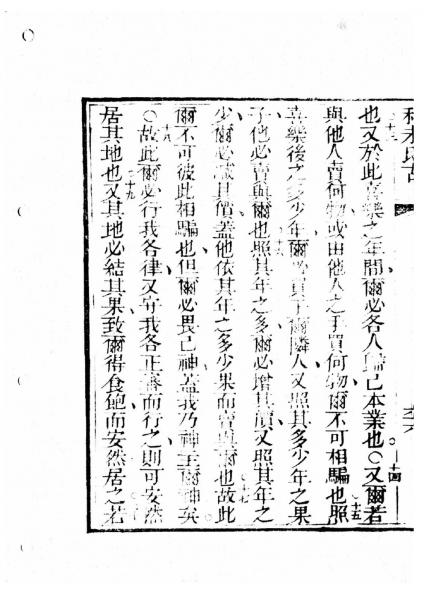 利未氏古
也又於此喜樂之年間爾必各人歸己本業也○又爾若
與他人買何物或由他人之手買何物爾不可相騙也照
喜樂後之多少年爾必買于爾隣人又照其多少年之果
子他必賣與爾也照其年之多爾必增其價又照其年之
少爾必減其價蓋他依其年之多少果而賣與爾也故此
爾不可彼此相騙也但爾必畏己神蓋我乃神主爾神矣
○故此爾必行我各律又守我各正審而行之則可安然
居其地也又其地必結其果致爾得食飽而安然居之若